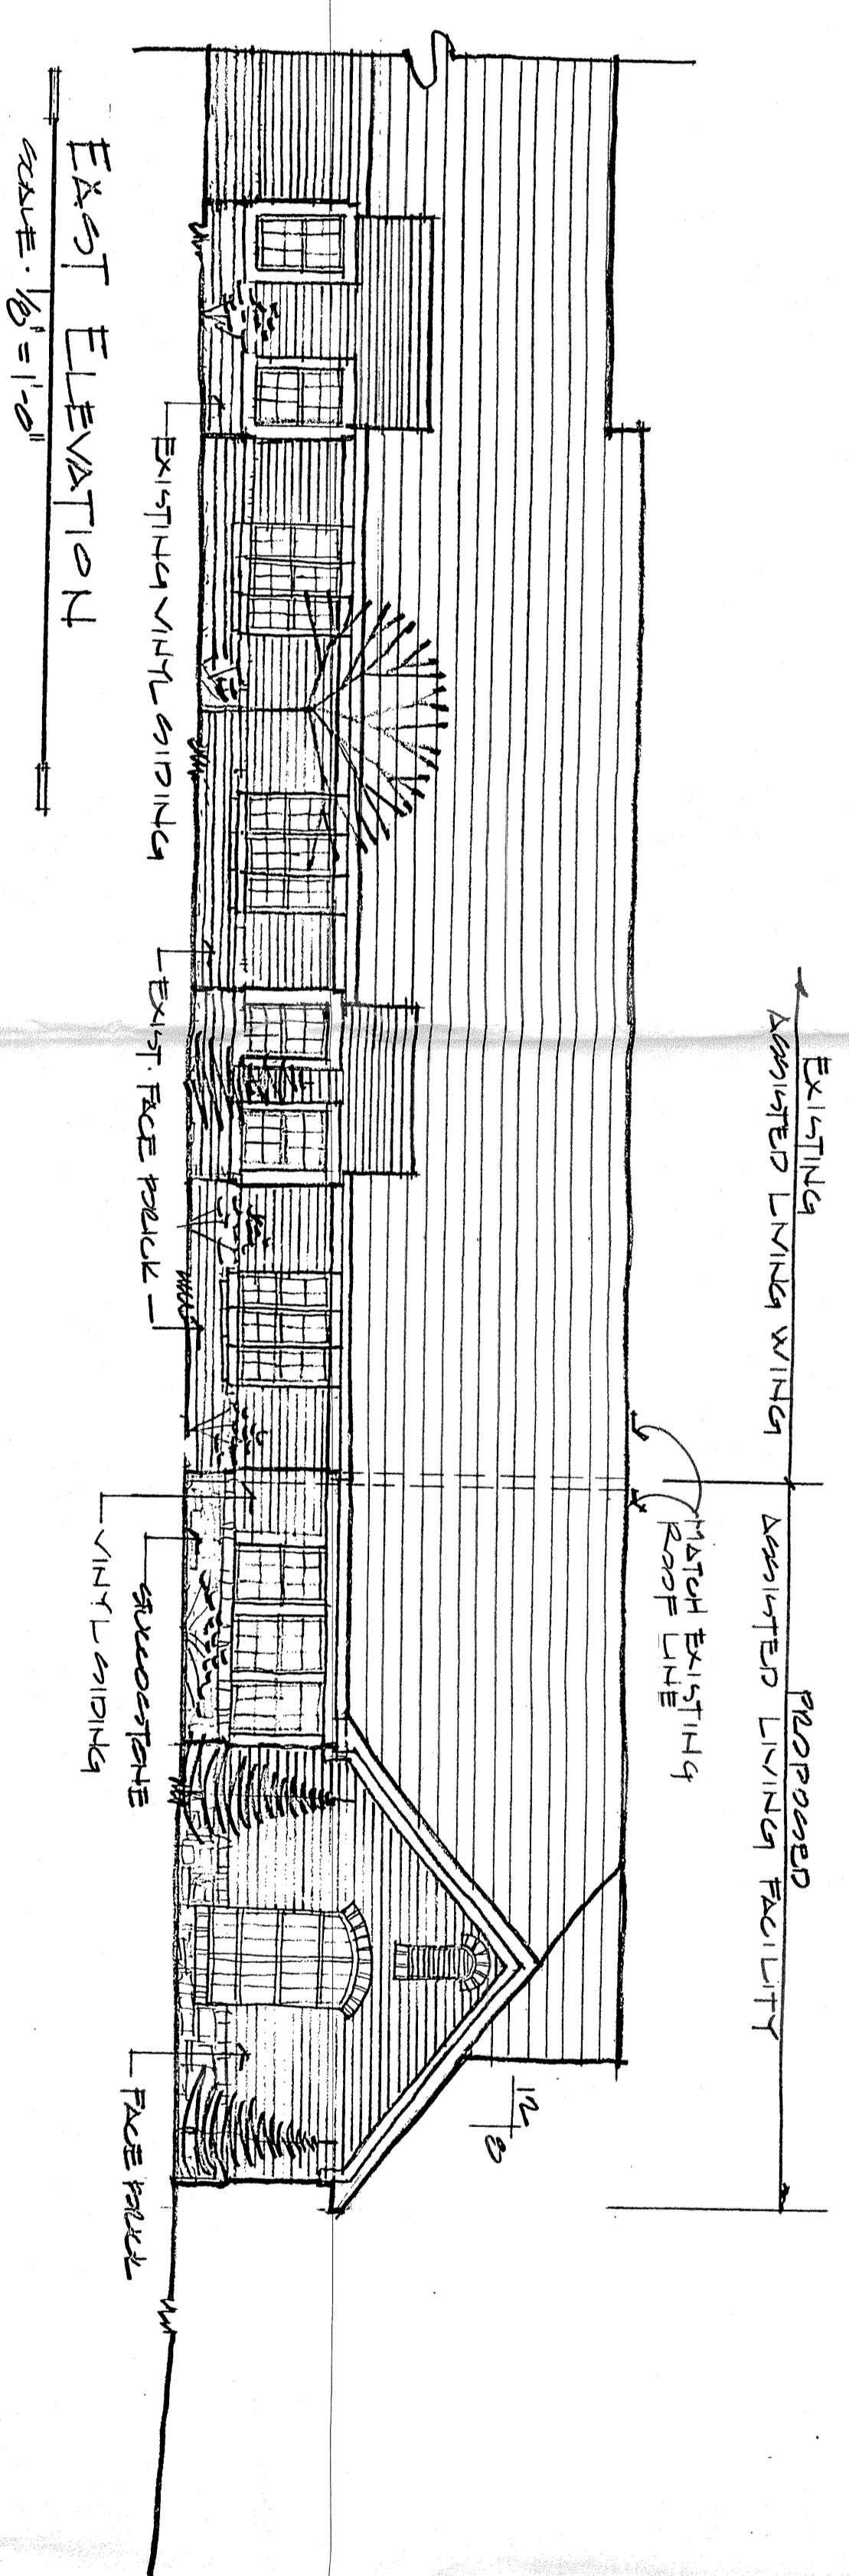 EXISTING
ASSISTED LIVING WING
PROPOSED
ASSISTED LIVING FACILITY
MATCH EXISTING
ROOF LINE
12
8
EXISTING VINYL SIDING
EXIST. FACE BRICK
STUCCOSTONE
VINYL SIDING
FACE BRICK
EAST ELEVATION
SCALE · 1/8" = 1'-0"